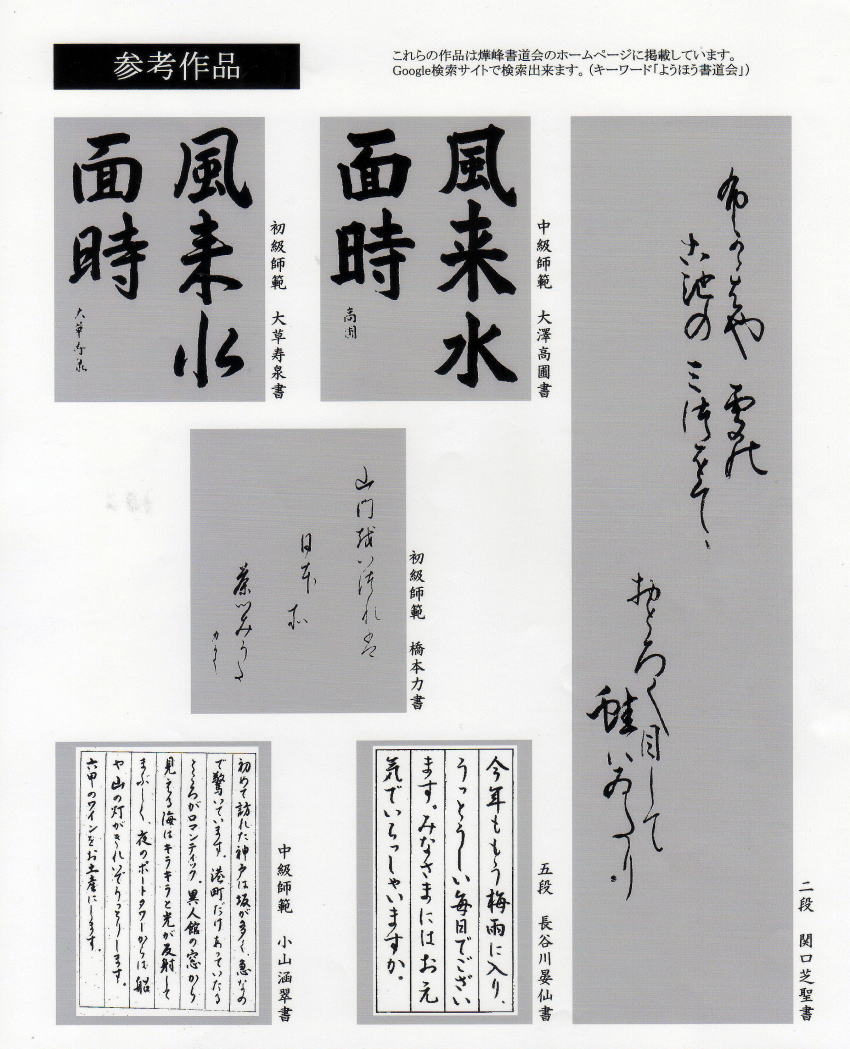 参考作品
これらの作品は燁峰書道会のホームページに掲載しています。
Google検索サイトで検索出来ます。（キーワード「ようほう書道会」）
二段　関口芝聖書
風来水
面時
高圃
中級師範　大澤高圃書
風来水
面時
大草寿泉
初級師範　大草寿泉書
日本
初級師範　橋本力書
今年ももう梅雨に入り、
うっとうしい毎日でござい
ます。みなさまにはお元
気でいらっしゃいますか。
五段　長谷川晏仙書
初めて訪れた神戸は坂が多く、急なの
で驚いています。港町だけあっていたる
ところがロマンティック。異人館の窓から
見える海はキラキラと光が反射して
まぶしく、夜のポートタワーからは船
や山の灯がきれいでうっとりします。
六甲のワインをお土産にします。
中級師範　小山涵翠書